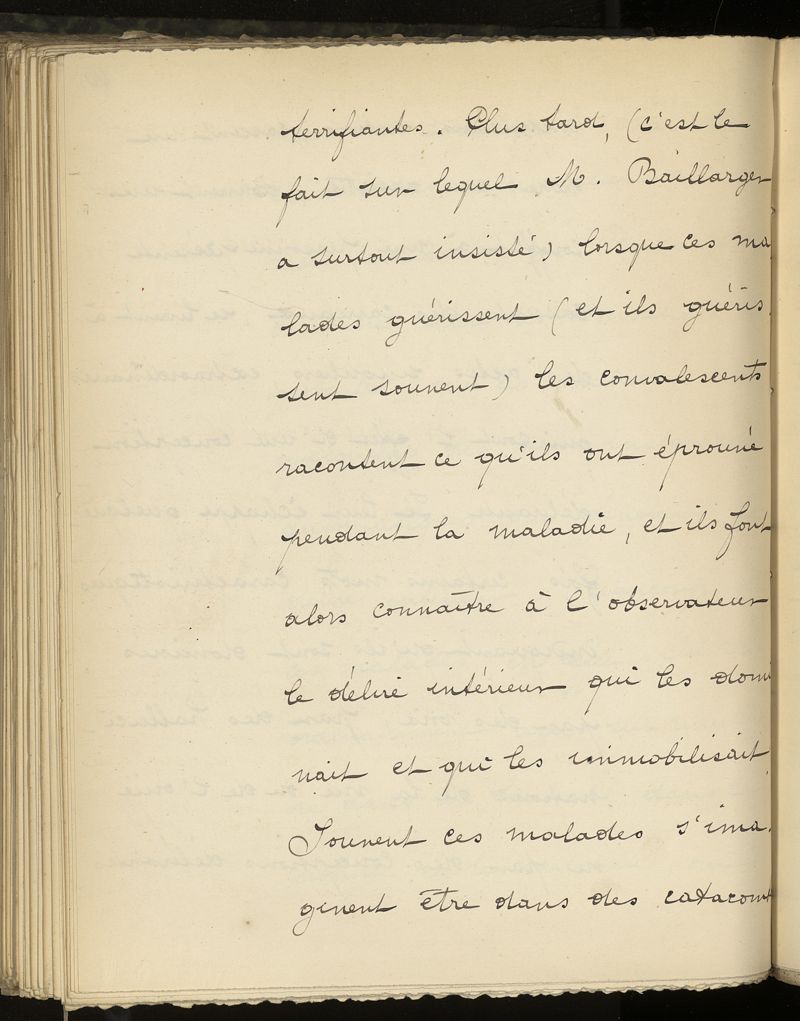 terrifiantes. Plus tard, (c'est le
fait sur lequel M. Baillarger
a surtout insisté) lorsque ces ma
lades guérissent (et ils guéris
sent souvent) les convalescents
racontent ce qu'ils ont éprouvé
pendant la maladie, et ils font
alors connaître à l'observateur
le délire intérieur qui les domi
nait et qui les immobilisait.
Souvent ces malades s'ima-
ginent être dans des catacomb